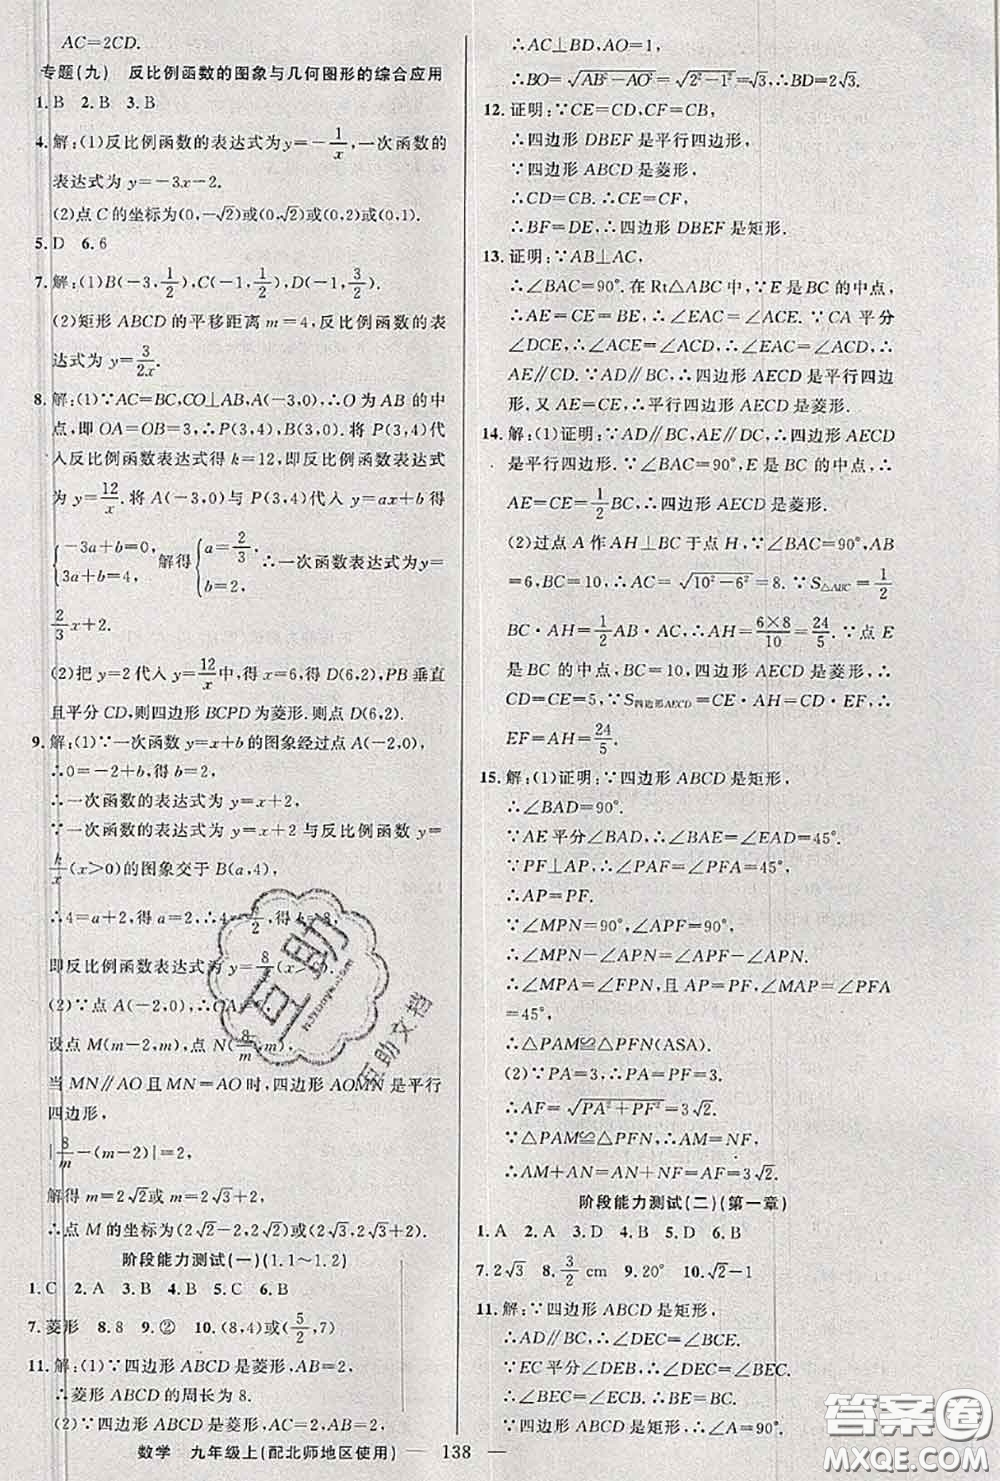 AC=2CD.
专题(九)　反比例函数的图象与几何图形的综合应用
1. B　2. B　3. B
4. 解:(1)反比例函数的表达式为 y=-1/x,一次函数的
表达式为 y=-3x-2.
(2)点 C 的坐标为(0,-√2)或(0,√2)或(0,2)或(0,1).
5. D　6. 6
7. 解:(1)B(-3,1/2),C(-1,1/2),D(-1,3/2).
(2)矩形 ABCD 的平移距离 m=4,反比例函数的表
达式为 y=3/2x.
8. 解:(1)∵AC=BC,CO⊥AB,A(-3,0),∴O 为 AB 的中
点,即 OA=OB=3,∴P(3,4),B(3,0). 将 P(3,4)代
入反比例函数表达式得 k=12,即反比例函数表达式
为 y=12/x. 将 A(-3,0)与 P(3,4)代入 y=ax+b 得
{-3a+b=0, 3a+b=4, 解得{a=2/3, b=2. ∴一次函数表达式为 y=
2/3x+2.
(2)把 y=2 代入 y=12/x中,得 x=6,得 D(6,2),PB 垂直
且平分 CD,则四边形 BCPD 为菱形. 则点 D(6,2).
9. 解:(1)∵一次函数 y=x+b 的图象经过点 A(-2,0),
∴0=-2+b,得 b=2,
∴一次函数的表达式为 y=x+2,
∵一次函数的表达式为 y=x+2 与反比例函数 y=
k/x(x>0)的图象交于 B(a,4),
∴4=a+2,得 a=2,∴4=k/2,得 k=8,
即反比例函数表达式为 y=8/x(x>0).
(2)∵点 A(-2,0),∴OA=2,
设点 M(m-2,m),点 N(8/m,m),
当 MN∥AO 且 MN=AO 时,四边形 AOMN 是平行
四边形,
|8/m-(m-2)|=2,
解得 m=2√2或 m=2√3+2,
∴点 M 的坐标为(2√2-2,2√2)或(2√3,2√3+2).
阶段能力测试(一)(1.1~1.2)
1. C　2. A　3. B　4. B　5. C　6. B
7. 菱形　8. 8　9. ②　10. (8,4)或(5/2,7)
11. 解:(1)∵四边形 ABCD 是菱形,AB=2,
∴菱形 ABCD 的周长为 8.
(2)∵四边形 ABCD 是菱形,AC=2,AB=2,
∴AC⊥BD,AO=1,
∴BO=√AB²-AO²=√2²-1²=√3,∴BD=2√3.
12. 证明:∵CE=CD,CF=CB,
∴四边形 DBEF 是平行四边形,
∵四边形 ABCD 是菱形,
∴CD=CB. ∴CE=CF,
∴BF=DE,∴四边形 DBEF 是矩形.
13. 证明:∵AB⊥AC,
∴∠BAC=90°. 在 Rt△ABC 中,∵E 是 BC 的中点,
∴AE=CE=BE,∴∠EAC=∠ACE. ∵CA 平分
∠DCE,∴∠ACE=∠ACD,∴∠EAC=∠ACD,∴
AE∥CD. 又∵AD∥CE,∴四边形 AECD 是平行四边
形. 又 AE=CE,∴四边形 AECD 是菱形.
14. 解:(1)证明:∵AD∥BC,AE∥DC,∴四边形 AECD
是平行四边形. ∵∠BAC=90°,E 是 BC 的中点,∴
AE=CE=1/2BC,∴四边形 AECD 是菱形.
(2)过点 A 作 AH⊥BC 于点 H,∵∠BAC=90°,AB
=6,BC=10,∴AC=√10²-6²=8. ∵S△ABC=1/2
BC·AH=1/2AB·AC,∴AH=6×8/10=24/5. ∵点 E
是 BC 的中点,BC=10,四边形 AECD 是菱形,∴
CD=CE=5,∵S四边形AECD=CE·AH=CD·EF,∴
EF=AH=24/5.
15. 解:(1)证明:∵四边形 ABCD 是矩形,
∴∠BAD=90°.
∵AE 平分∠BAD,∴∠BAE=∠EAD=45°.
∵PF⊥AP,∴∠PAF=∠PFA=45°,
∴AP=PF.
∵∠MPN=90°,∠APF=90°,
∴∠MPN-∠APN=∠APF-∠APN,
∴∠MPA=∠FPN,且 AP=PF,∠MAP=∠PFA
=45°,
∴△PAM≌△PFN(ASA).
(2)∵PA=3,∴PA=PF=3.
∴AF=√PA²+PF²=3√2.
∵△PAM≌△PFN,∴AM=NF,
∴AM+AN=AN+NF=AF=3√2.
阶段能力测试(二)(第一章)
1. A　2. A　3. D　4. D　5. D　6. B
7. 2√3　8. 3/2 cm　9. 20°　10. √2-1
11. 解:∵四边形 ABCD 是矩形,
∴AD∥BC,∴∠DEC=∠BCE.
∵EC 平分∠DEB,∴∠DEC=∠BEC.
∴∠BEC=∠ECB,∴BE=BC.
∵四边形 ABCD 是矩形,∴∠A=90°.
数学　九年级上(配北师地区使用) — 138 —
互助
互助文档
答案圈
MXQE.COM